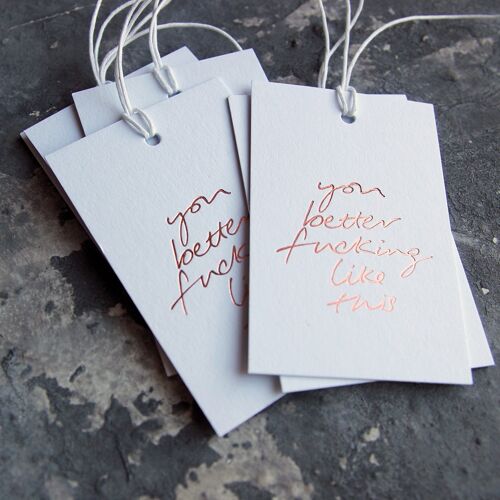 you
better
fuck
li
you
better
fucking
like
this